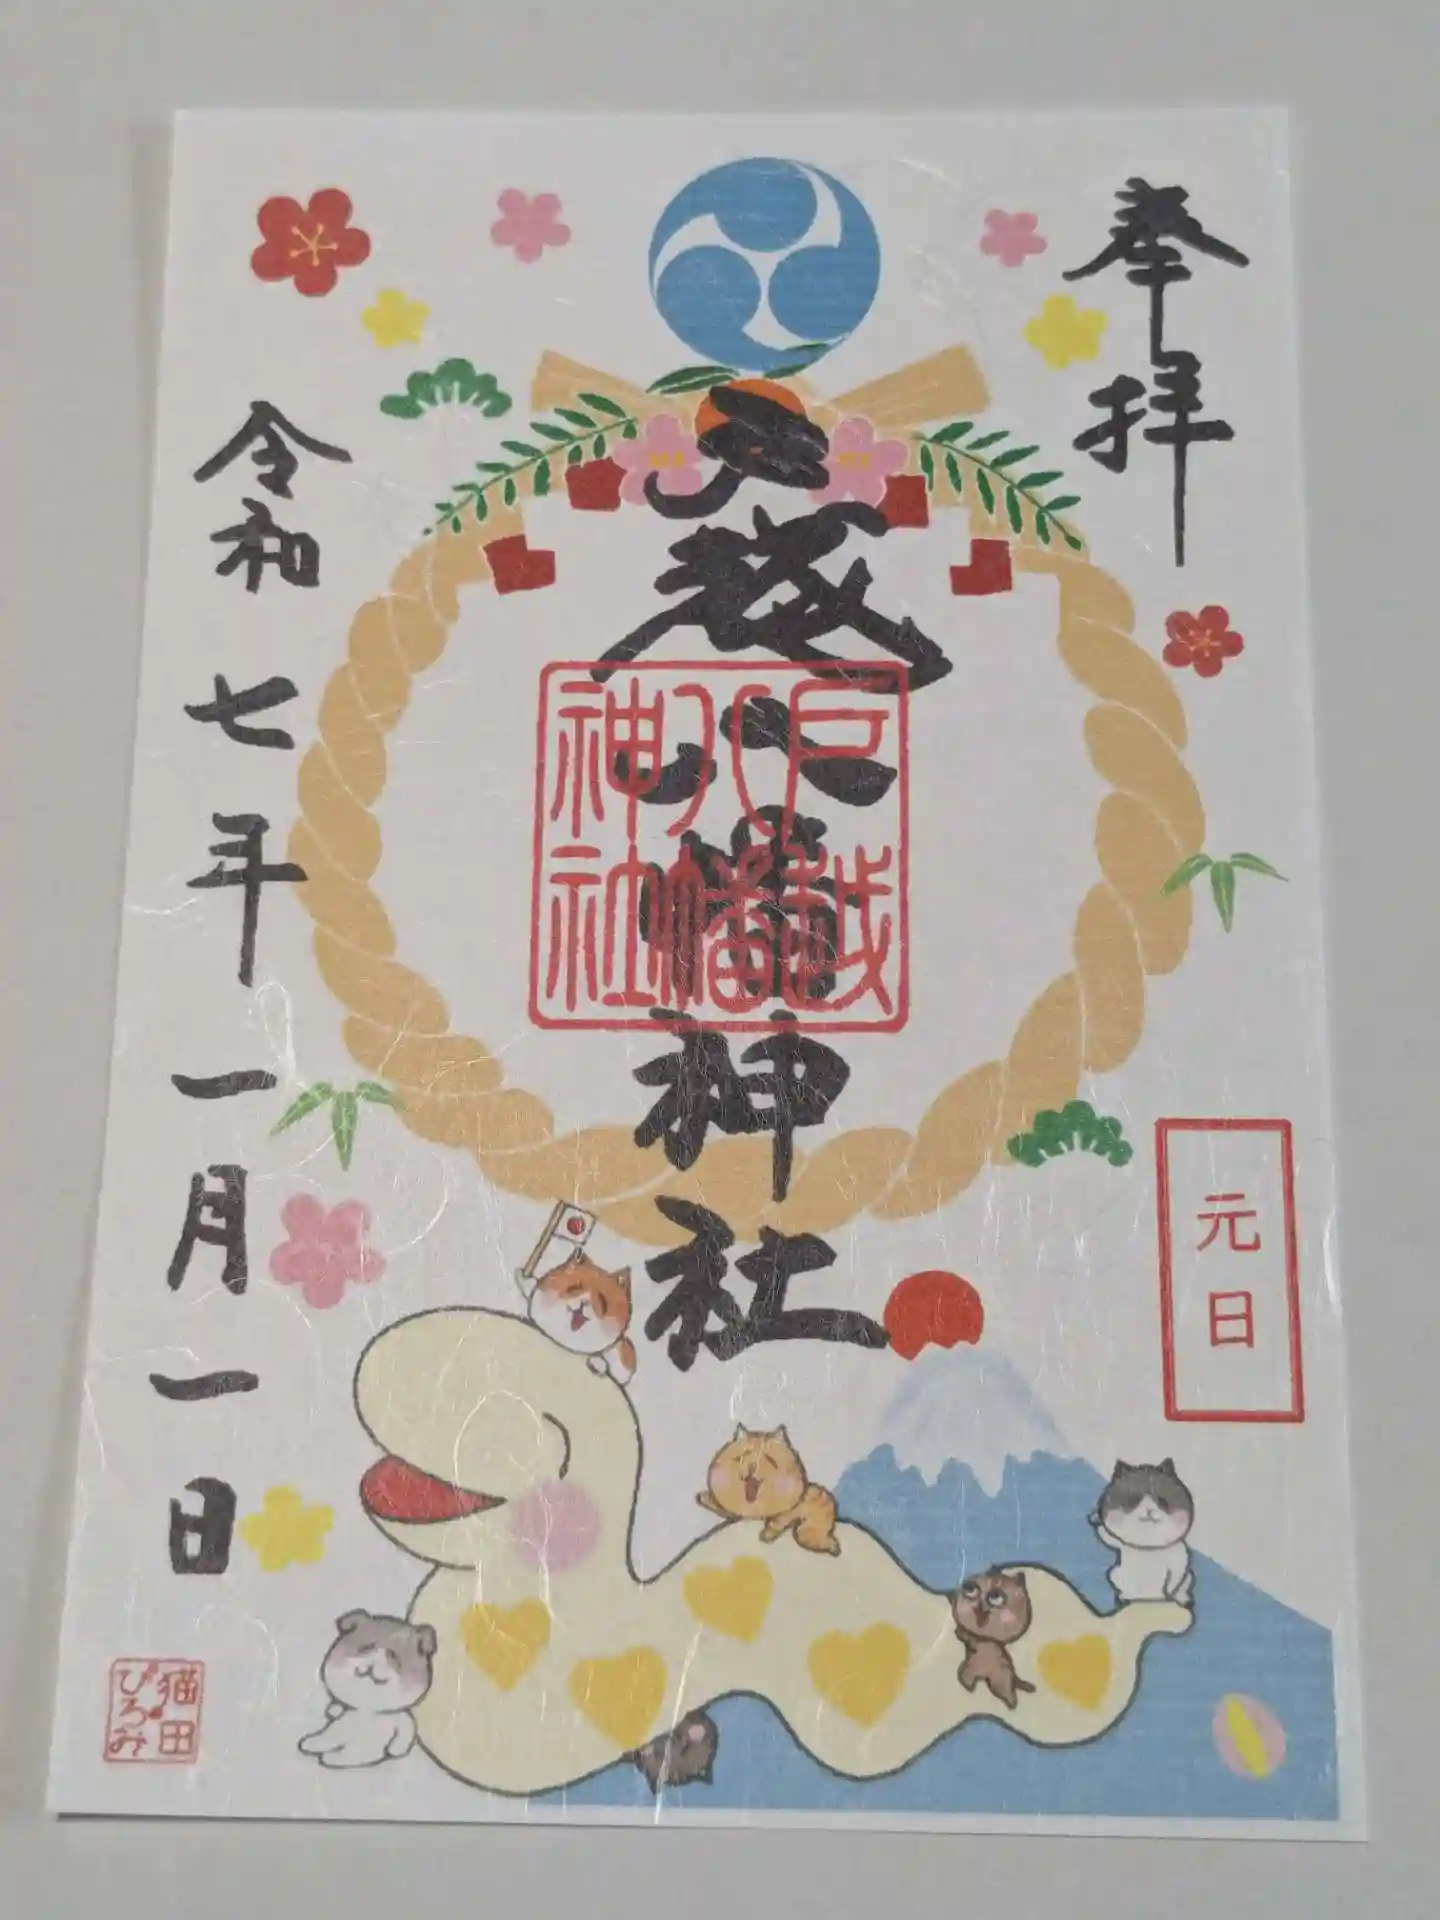 奉拝
戸越八幡神社
戸越
八幡
神社
令和七年一月一日
元日
猫田
びろみ